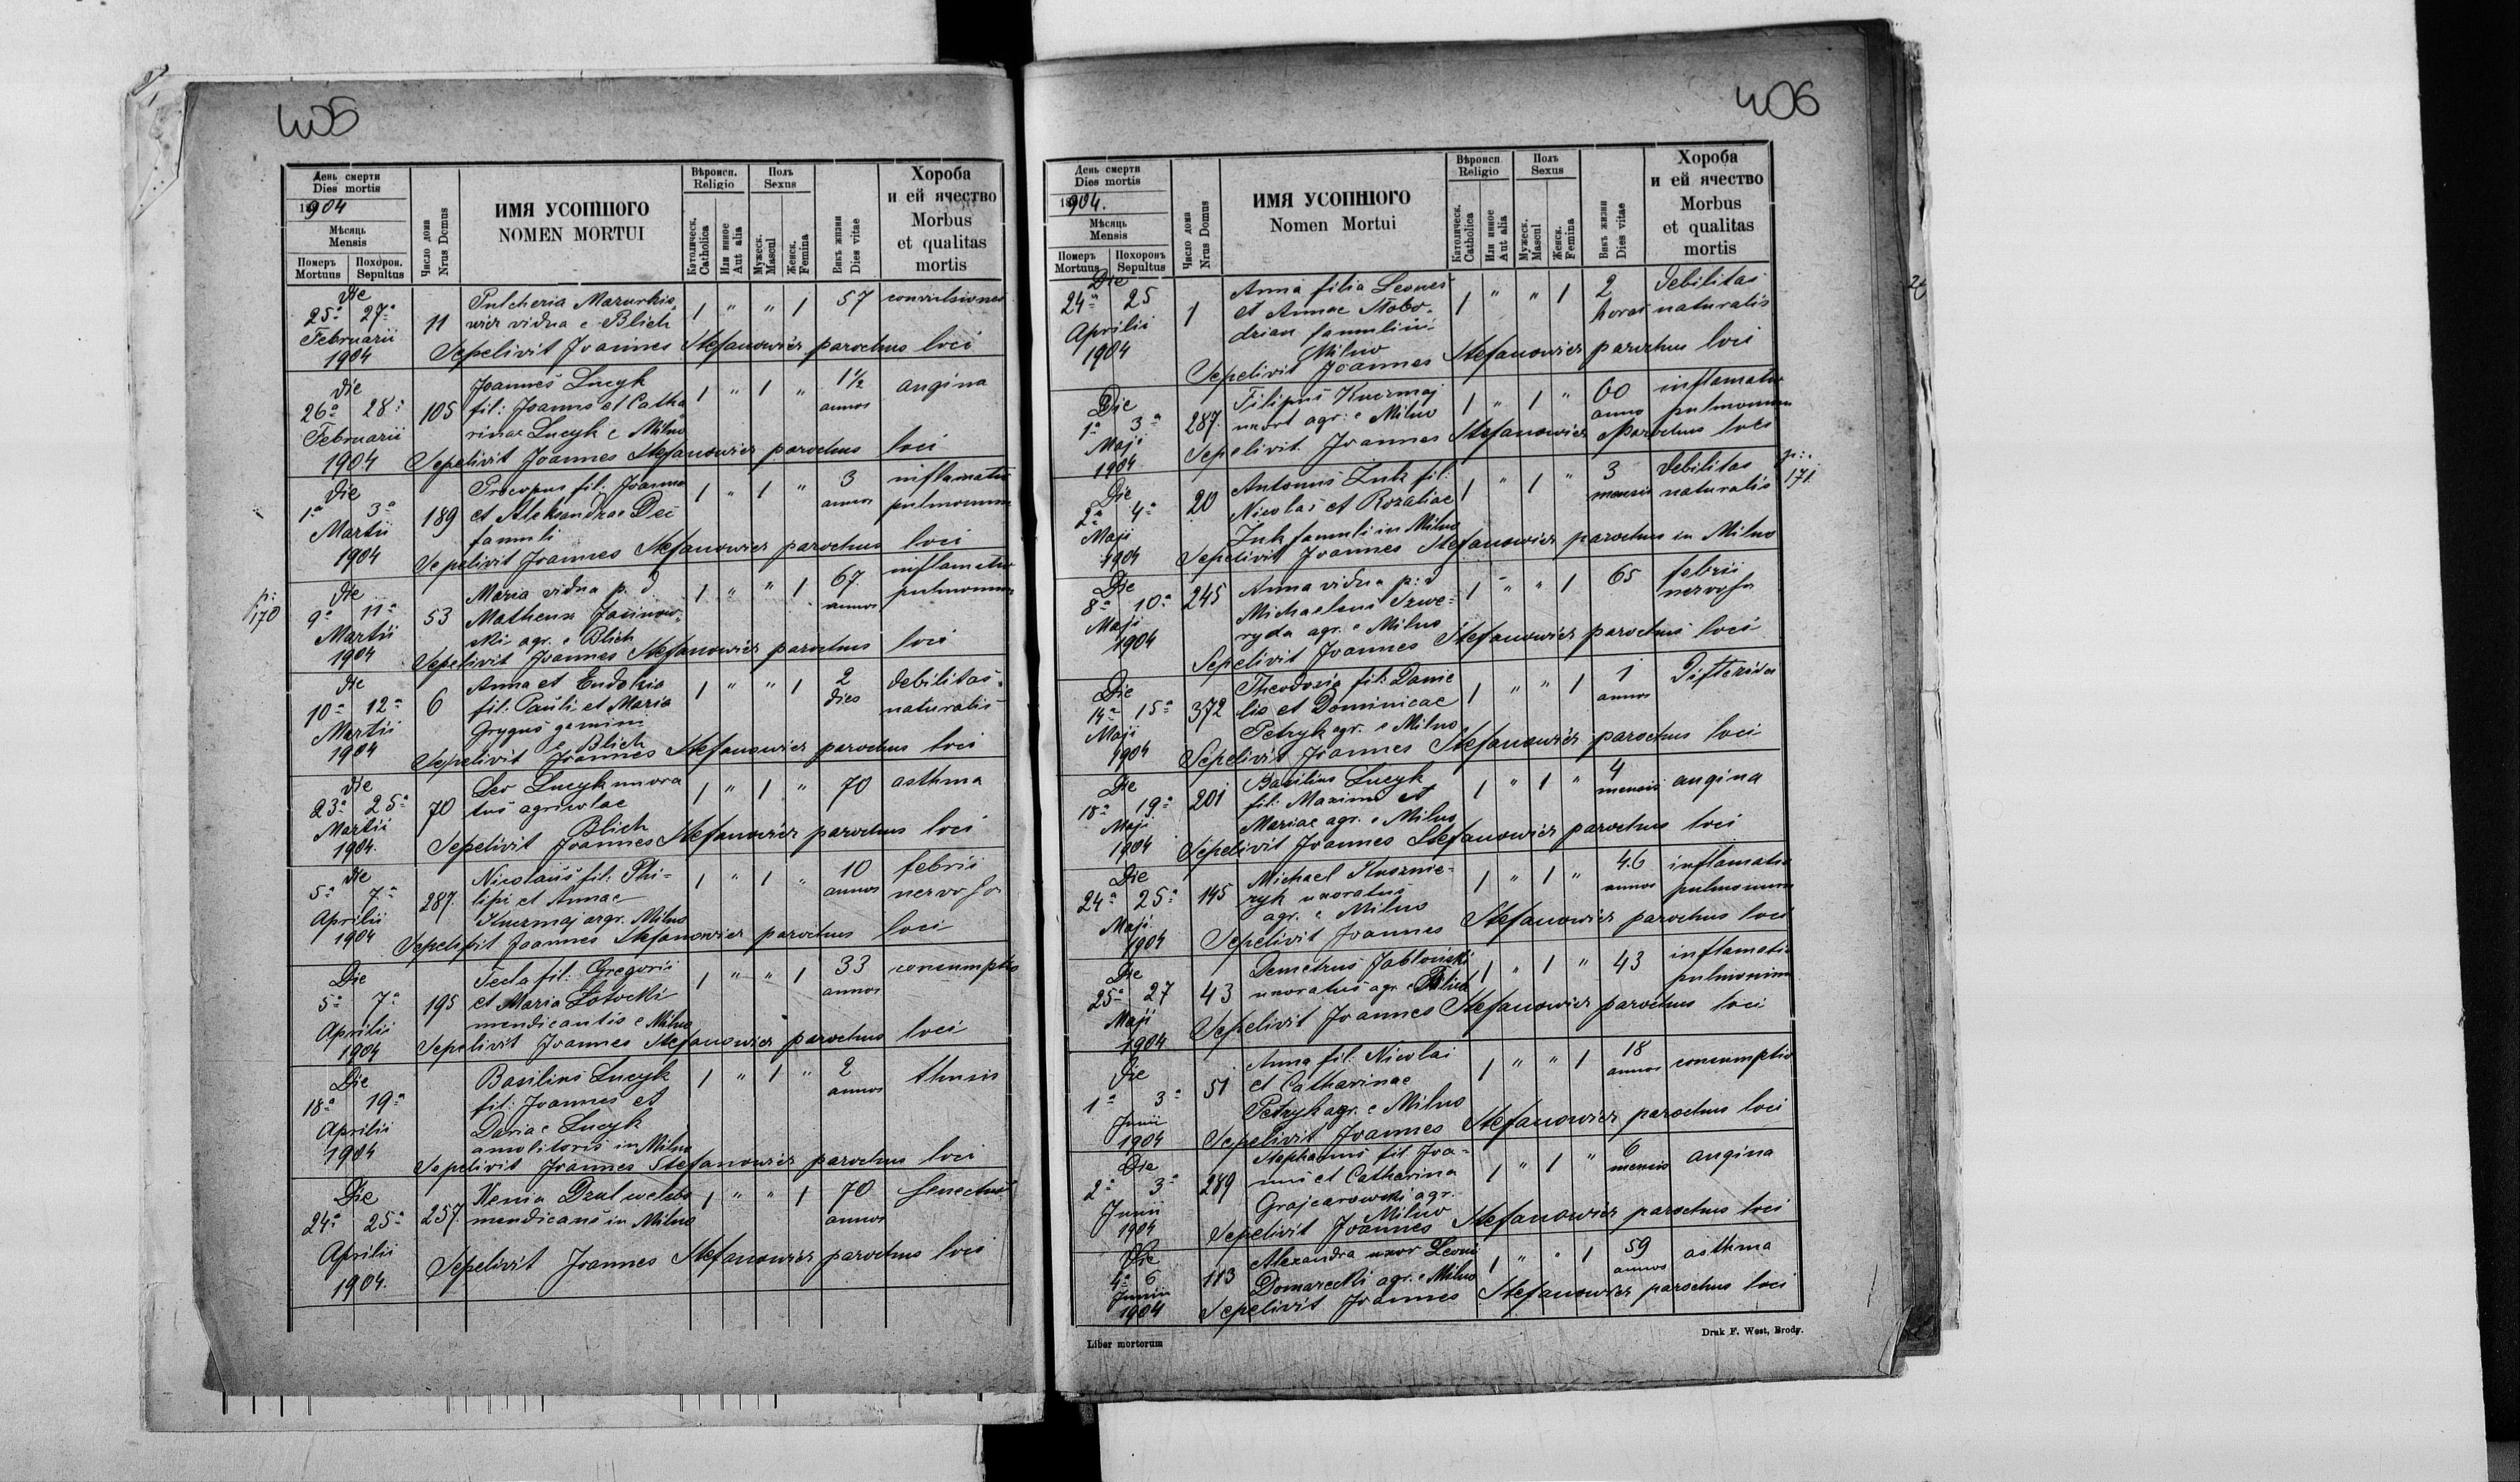 405
День смерти
Dies mortis
1904
Мѣсяць
Mensis
Померъ Mortuus
Похорон. Sepultus
Число дома
Nrus Domus
ИМЯ УСОПШОГО
NOMEN MORTUI
Вѣроисп.
Religio
Католическ.
Catholica
Или инное
Aut alia
Полъ
Sexus
Мужеск.
Mascul
Женск.
Femina
Вѣкъ жизни
Dies vitae
Хороба
и ей ячество
Morbus
et qualitas
mortis
Die
25ª 27ª
Februarii
1904
11
Pulcheria Mazurkie
wicz vidua e Blich
1 " " 1 57 convulsiones
Sepelivit Joannes Stefanowicz parochus loci
Die
26ª 28ª
Februarii
1904
105
Joannes Lucyk
fil: Joannis et Catha
rinae Lucyk e Milno
1 " 1 " 1½ annos angina
Sepelivit Joannes Stefanowicz parochus loci
Die
1ª 3ª
Martii
1904
189
Procopus fil: Joannis
et Aleksandrae Dec
famuli
1 " 1 " 3 annos
inflamatio
pulmonum
Sepelivit Joannes Stefanowicz parochus loci
p:
170
Die
9ª 11ª
Martii
1904
53
Maria vidua p. d
Matheus Jasinow-
ski agr. e Blich
1 " " 1 67 annos
inflamatio
pulmonum
Sepelivit Joannes Stefanowicz parochus loci
Die
10ª 12ª
Martii
1904
6
Anna et Eudokia
fil: Pauli et Maria
Gryguś gemini
e Blich
1 " " 1 2 dies
debilitas
naturalis
Sepelivit Joannes Stefanowicz parochus loci
Die
23ª 25ª
Martii
1904.
70
Leo Lucyk uxora
tus agricolae
Blich
1 " 1 " 70 asthma
Sepelivit Joannes Stefanowicz parochus loci
Die
5ª 7ª
Aprilii
1904
287.
Nicolaus fil: Phi-
lipi et Annae
Kuzmaj agr. Milno
1 " 1 " 10 annos
febris
nervosa
Sepelivit Joannes Stefanowicz parochus loci
Die
5ª 7ª
Aprilii
1904
195
Tecla fil: Gregorii
et Maria Lotocki
mendicantis e Milno
1 " " 1 33 annos consumptio
Sepelivit Joannes Stefanowicz parochus loci
Die
18ª 19ª
Aprilii
1904
Basilius Lucyk
fil: Joannes et
Dariae Lucyk
in Milno
1 " 1 " 2 annos
Sepelivit Joannes Stefanowicz parochus loci
Die
24ª 25ª
Aprilii
1904.
257.
Xenia
mendicans in Milno
1 " " 1 70 annos senectus
Sepelivit Joannes Stefanowicz parochus loci
406
День смерти
Dies mortis
1904.
Мѣсяць
Mensis
Померъ Mortuus
Похоронъ Sepultus
Число дома
Nrus Domus
ИМЯ УСОПШОГО
Nomen Mortui
Вѣроисп
Religio
Католическ.
Catholica
Или инное
Aut alia
Полъ
Sexus
Мужеск.
Mascul
Женск.
Femina
Вѣкъ жизни
Dies vitae
Хороба
и ей ячество
Morbus
et qualitas
mortis
Die
24ª 25
Aprilii
1904
1
Anna filia Leones
et Annae Słobo-
dzian famulini
Milno
1 " " 1 2 horas
Debilitas
naturalis
Sepelivit Joannes Stefanowicz parochus loci
Die
1ª 3ª
Maji
1904
287.
Filipus Kuzmaj
uxort agr: e Milno
1 " 1 " 60 anno
inflamatio
pulmonum
Sepelivit Joannes Stefanowicz Parochus loci
Die
2ª 4ª
Maji
1904
20
Antonius Żuk fil:
Nicolai et Rozaliae
Żuk famuli in Milno
1 " 1 " 3 mensis
debilitas
naturalis
p:.
171
Sepelivit Joannes Stefanowicz parochus in Milno
Die
8ª 10ª
Maji
1904
245
Anna vidua p: d
Michaeleus Szwe-
ryda agr. e Milno
1 " " 1 65
febris
nervosa
Sepelivit Joannes Stefanowicz parochus loci
Die
14ª 15ª
Maji
1904
372
Theodosia fil: Danie
lis et Dominicae
Petryk agr. e Milno
1 " " 1 1 annos Difterida
Sepelivit Joannes Stefanowicz parochus loci
Die
18ª 19ª
Maji
1904
201
Basilius Lucyk
fil: Maximi et
Mariae agr. e Milno
1 " 1 " 4 mensis angina
Sepelivit Joannes Stefanowicz parochus loci
Die
24ª 25ª
Maji
1904
145
Michael Kusznie-
ryk uxoratus
agr. e Milno
1 " 1 " 46 annos
inflamatio
pulmonum
Sepelivit Joannes Stefanowicz parochus loci
Die
25ª 27
Maji
1904
43
Demetrus Jabłoński
uxoratus agr. e Blich
1 " 1 " 43
inflamatio
pulmonum
Sepelivit Joannes Stefanowicz parochus loci
Die
1ª 3ª
Junii
1904
51
Anna fil: Nicolai
et Catharinae
Petryk agr. e Milno
1 " " 1 18 annos consumptio
Sepelivit Joannes Stefanowicz parochus loci
Die
2ª 3ª
Junii
1904
289
Stephanus fil Joa-
nnis et Catharina
Grajcarowski agr.
Milno
1 " 1 " 6 mensis angina
Sepelivit Joannes Stefanowicz parochus loci
Die
4ª 6
Junii
1904
113
Alexandra uxor Leonis
Domarecki agr. e Milno
1 " " 1 59 annos asthma
Sepelivit Joannes Stefanowicz parochus loci
Liber mortorum
Druk F. West, Brody.